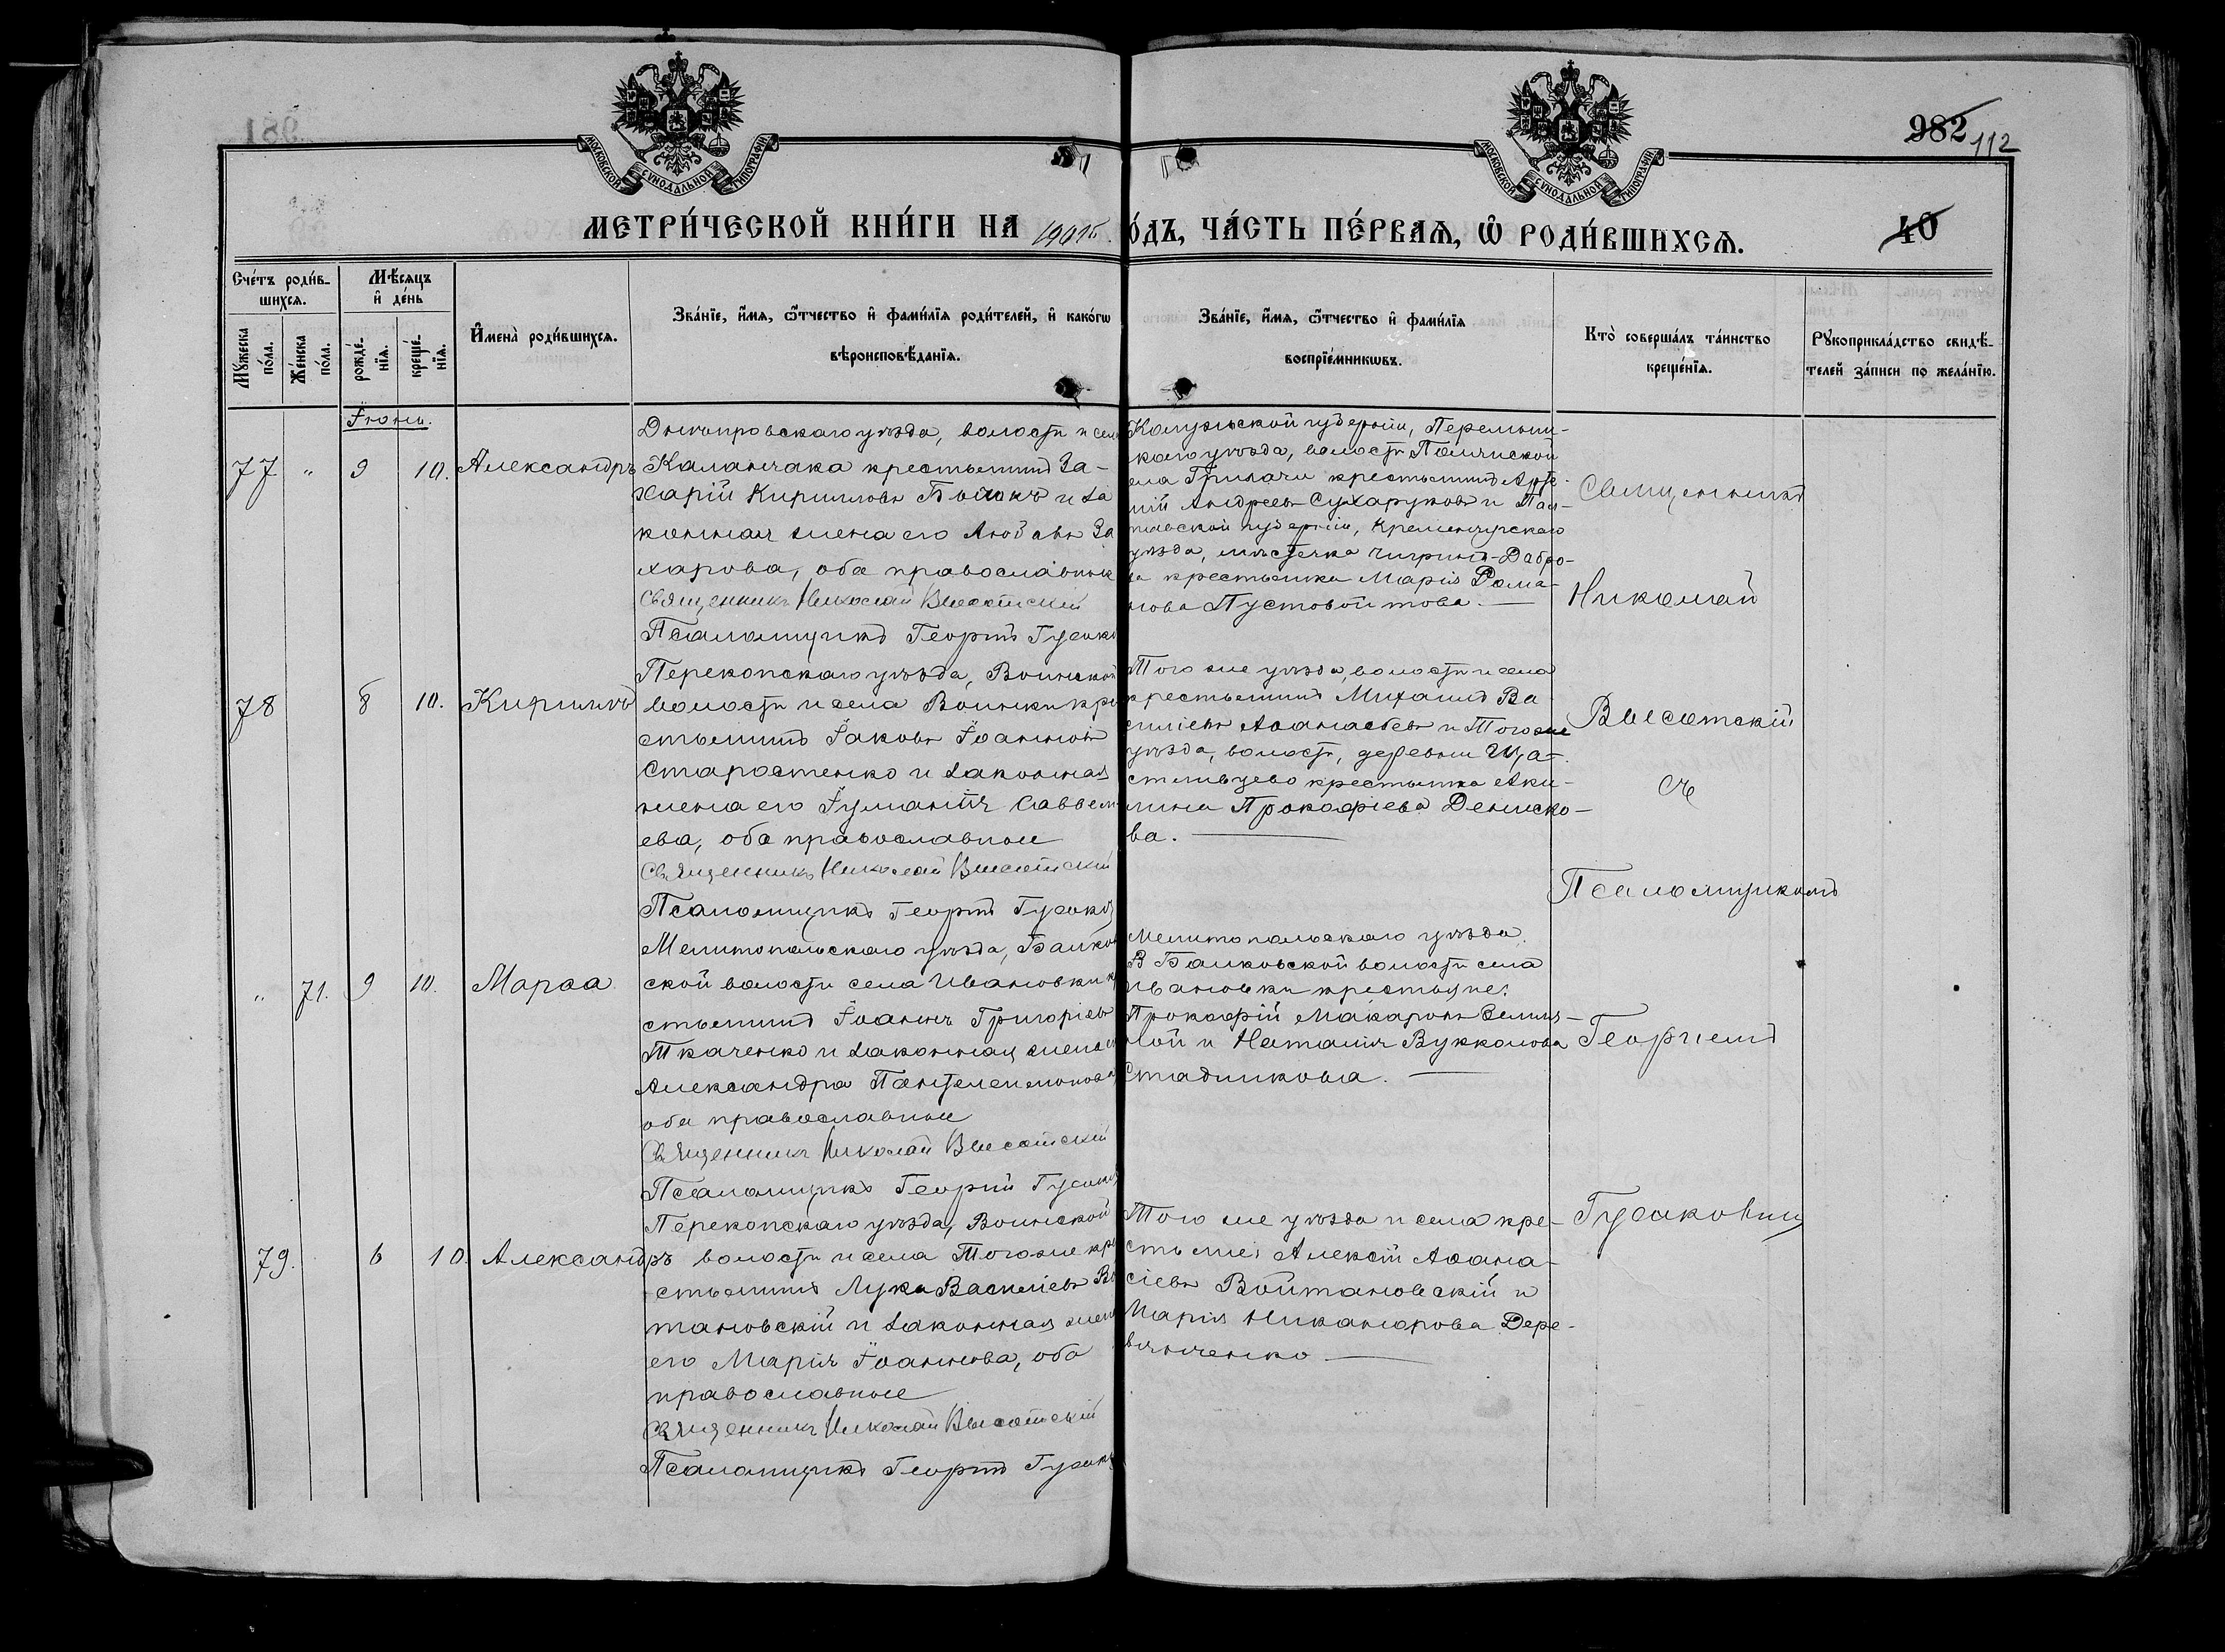 982 112
МОСКОВСКОЙ СѴНОДАЛЬНОЙ ТИПОГРАФІИ
МОСКОВСКОЙ СѴНОДАЛЬНОЙ ТИПОГРАФІИ
МЕТРИ́ЧЕСКОЙ КНИ́ГИ НА
О́ДЪ, ЧА́СТЬ ПЕ́РВАѦ, Ѽ РОДИ́ВШИХСѦ.
40
Сче́тъ роди́в-
шихсѧ.
Мꙋ́жеска
по́ла.
Же́нска
по́ла.
Мѣ́сяцъ
и҆ де́нь
рожде́-
нїѧ.
креще́-
нїѧ.
И҆мена̀ роди́вшихсѧ.
Зва́нїе, и҆́мѧ, ѻ҆́тчество и҆ фами́лїѧ роди́телей, и҆ како́гѡ
вѣроисповѣ́данїѧ.
Зва́нїе, и҆́мѧ, ѻ҆́тчество и҆ фами́лїѧ
воспрїе́мникѡвъ.
Кто̀ соверша́лъ та́инство
креще́нїѧ.
Рꙋкоприкла́дство свидѣ́-
телей за́писи по жела́нїю.
Іюнь.
77 " 9 10. Александръ
Днѣпровскаго уѣзда, волости и сел
Каланчака крестьянинъ За-
харій Кирилловъ и за
конная жена его Любовь За
харова, оба православные
Священникъ Николай Высотскій
Псаломщикъ Георгій Гусако
Калужской губерніи, Перемыш-
каго уѣзда, волости
ела крестьянинъ Арсе-
ній Андреевъ Сухаруковъ и Пол-
тавской губерніи, Кременчугскаго
уѣзда, мѣстечка Чигринъ-Дабро-
ва крестьянка Марія Рома-
нова Пустовойтова. —
78 8 10. Кириллъ
Перекопскаго уѣзда, Воинской
волости и села Воинки кре
стьянинъ Іаковъ Іоанновъ
Старостенко и законная
жена его Іуліанія Саввел
ева, оба православные
Священникъ Николай Высотскій
Псаломщикъ Георгій Гусако
Того же уѣзда, волости и села
крестьянинъ Михаилъ Ва
силіевъ Аѳанасьевъ и Того же
уѣзда, волости, деревни Ща-
стливцево крестьянка Аки-
лина Прокофіева Дениско-
ва. —
" 71. 9 10. Марѳа
Мелитопольскаго уѣзда, Балков
ской волости села Ивановки к
стьянинъ Іоаннъ Григоріевъ
Ткаченко и законная жена е
Александра Пантелеимонова
оба православные
Священникъ Николай Высотскій
Псаломщикъ Георгій Гусако
Мелитопольскаго уѣзда
В Балковской волости села
Ивановки крестьяне:
Прокофій Макаровъ
и Наталія Вукколова
Стадникова. —
79. 6 10. Александръ
Перекопскаго уѣзда, Воинской
волости и села Того же кре
стьянинъ Лука Василіевъ Во
тановскій и законная жен
его Марія Іоаннова, оба
православные
Священникъ Николай Высотскій
Псаломщикъ Георгій Гусако
Того же уѣзда и села кре-
стьяне: Алексій Аѳана-
сіевъ Войтановскій и
Марія Никанорова Дере-
вянченко —
Священникъ
Николай
Высотскій
съ
Псаломщикомъ
Георгіемъ
Гусаковым